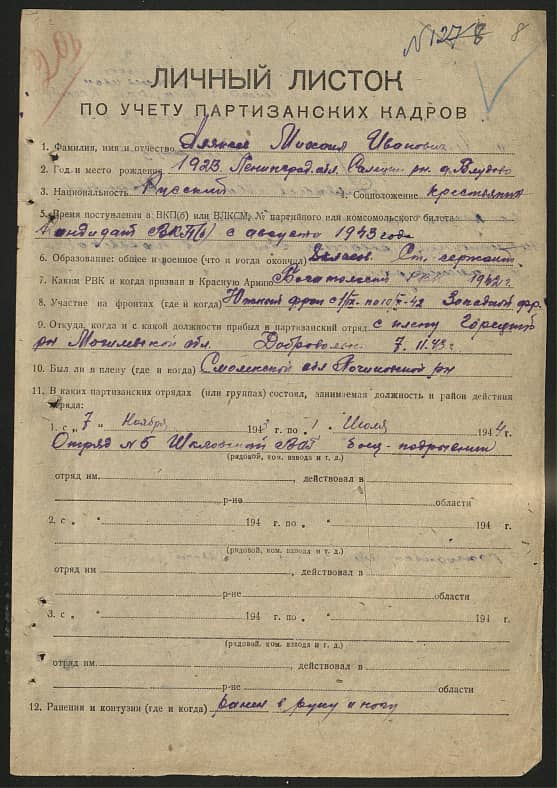 № 1278 8
ЛИЧНЫЙ ЛИСТОК
ПО УЧЕТУ ПАРТИЗАНСКИХ КАДРОВ
1. Фамилия, имя и отчество Михаил Иванович
2. Год и место рождения 1923 Ленинград. обл. рн. д.
3. Национальность Русский 4. Соцположение крестьянин
5. Время поступления в ВКП(б) или ВЛКСМ, № партийного или комсомольского билета
Кандидат ВКП(б) с августа 1943 года
6. Образование: общее и военное (что и когда окончил) Ст. сержант
7. Каким РВК и когда призван в Красную Армию 1942 г.
8. Участие на фронтах (где и когда) Южный фрон Западной фр.
9. Откуда, когда и с какой должности прибыл в партизанский отряд с плену
рн Могилевской обл. Добровольно 7. 11. 43 г.
10. Был ли в плену (где и когда) Смоленской обл Починковой рн
11. В каких партизанских отрядах (или группах) состоял, занимаемая должность и район действия
отряда:
1. с „7„ Ноября 1943 г. по „1„ Июля 1944 г.
Отряд № 5 Шкловской боец-подрывник
(рядовой, ком. взвода и т. д.)
отряд им. , действовал в
р-не области
2. с „ „ 194 г. по „ „ 194 г.
(рядовой, ком. взвода и т. д.)
отряд им , действовал в
р-не области
3. с „ „ 194 г. по „ „ 194 г.
(рядовой, ком. взвода и т. д.)
отряд им. , действовал в
р-не области
12. Ранения и контузии (где и когда) ранен в руку и ногу